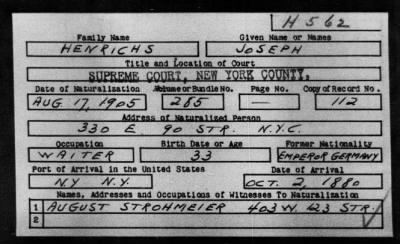 H 562
Family Name Given Name or Names
HENRICHS JOSEPH
Title and Location of Court
SUPREME COURT, NEW YORK COUNTY.
Date of Naturalization Volume or Bundle No. Page No. Copy of Record No.
AUG 17, 1905 285 — 112
Address of Naturalized Person
330 E 90 STR. N.Y.C.
Occupation Birth Date or Age Former Nationality
WAITER 33 EMPEROR GERMANY
Port of Arrival in the United States Date of Arrival
N.Y. N.Y. OCT. 2, 1880
Names, Addresses and Occupations of Witnesses To Naturalization
1 AUGUST STROHMEIER 403 W. 23 STR.
2